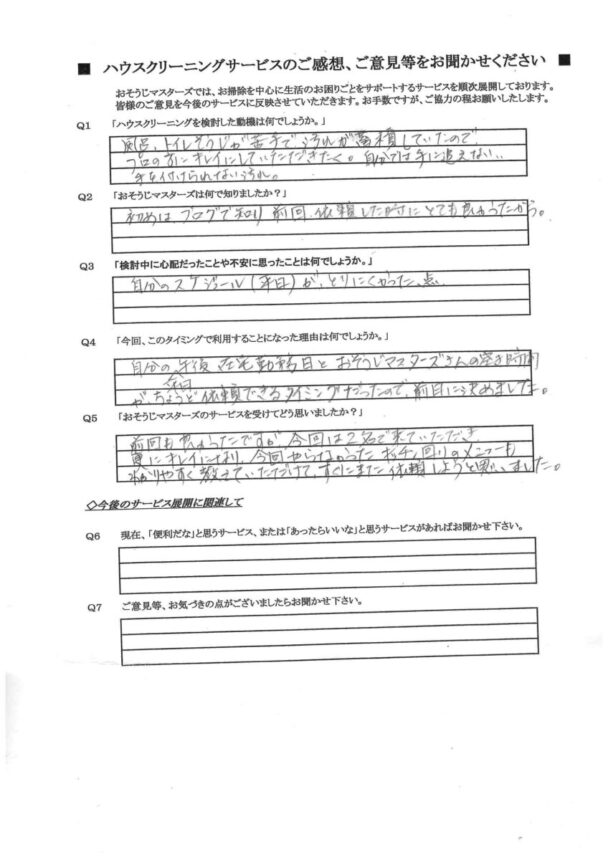 ■ ハウスクリーニングサービスのご感想、ご意見等をお聞かせください ■
おそうじマスターズでは、お掃除を中心に生活のお困りごとをサポートするサービスを順次展開しております。
皆様のご意見を今後のサービスに反映させていただきます。お手数ですが、ご協力の程お願いしたします。
Q1 「ハウスクリーニングを検討した動機は何でしょうか。」
風呂、トイレそうじが苦手で、汚れが蓄積していたので
プロの方にキレイにしていただきたく。自分では手に追えない、
手を付けられない汚れ。
Q2 「おそうじマスターズは何で知りましたか？」
初めはブログで知り 前回、依頼した時にとても良かったから。
Q3 「検討中に心配だったことや不安に思ったことは何でしょうか。」
自分のスケジュール(平日)が、とりにくかった点
Q4 「今回、このタイミングで利用することになった理由は何でしょうか。」
自分の午後 在宅勤務日とおそうじマスターズさんの空き時間
が、今日ちょうど依頼できるタイミングだったので、前日に決めました。
Q5 「おそうじマスターズのサービスを受けてどう思いましたか？」
前回も良かったですが、今回は2名で来ていただき
更にキレイになり、今回やらなかったキッチン回りのメニューも
わかりやすく教えていただけて、すぐにまた依頼しようと思いました。
◇今後のサービス展開に関連して
Q6 現在、「便利だな」と思うサービス、または「あったらいいな」と思うサービスがあればお聞かせ下さい。
Q7 ご意見等、お気づきの点がございましたらお聞かせ下さい。